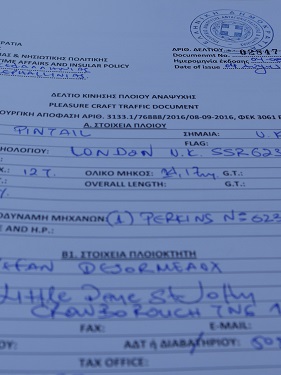 ΡΑΤΙΑ
ΑΣ & ΝΗΣΙΩΤΙΚΗΣ ΠΟΛΙΤΙΚΗΣ
TIME AFFAIRS AND INSULAR POLICY
ΑΡΙΘ. ΔΕΛΤΙΟΥ
02847
Ημερομηνία έκδοσης
Date of issue
ΔΕΛΤΙΟ ΚΙΝΗΣΗΣ ΠΛΟΙΟΥ ΑΝΑΨΥΧΗΣ
PLEASURE CRAFT TRAFFIC DOCUMENT
ΟΥΡΓΙΚΗ ΑΠΟΦΑΣΗ ΑΡΙΘΜ. 3133.1/76888/2016/08-09-2016, ΦΕΚ 3061
Α. ΣΤΟΙΧΕΙΑ ΠΛΟΙΟΥ
PINTAIL ΣΗΜΑΙΑ: U.K
FLAG:
ΗΟΛΟΓΙΟΥ: LONDON U.K. SSR623
X: 12T. ΟΛΙΚΟ ΜΗΚΟΣ: G.T.:
OVERALL LENGTH: G.T.:
ΟΔΥΝΑΜΗ ΜΗΧΑΝΩΝ (1) PERKINS No 623
E AND H.P.:
Β1. ΣΤΟΙΧΕΙΑ ΠΛΟΙΟΚΤΗΤΗ
EFAN DEJORMEAOX
Little
CROWBOROUGH TN6 1
FAX: E-MAIL:
ΑΔΤ ή ΔΙΑΒΑΤΗΡΙΟΥ: 50
TAX OFFICE: